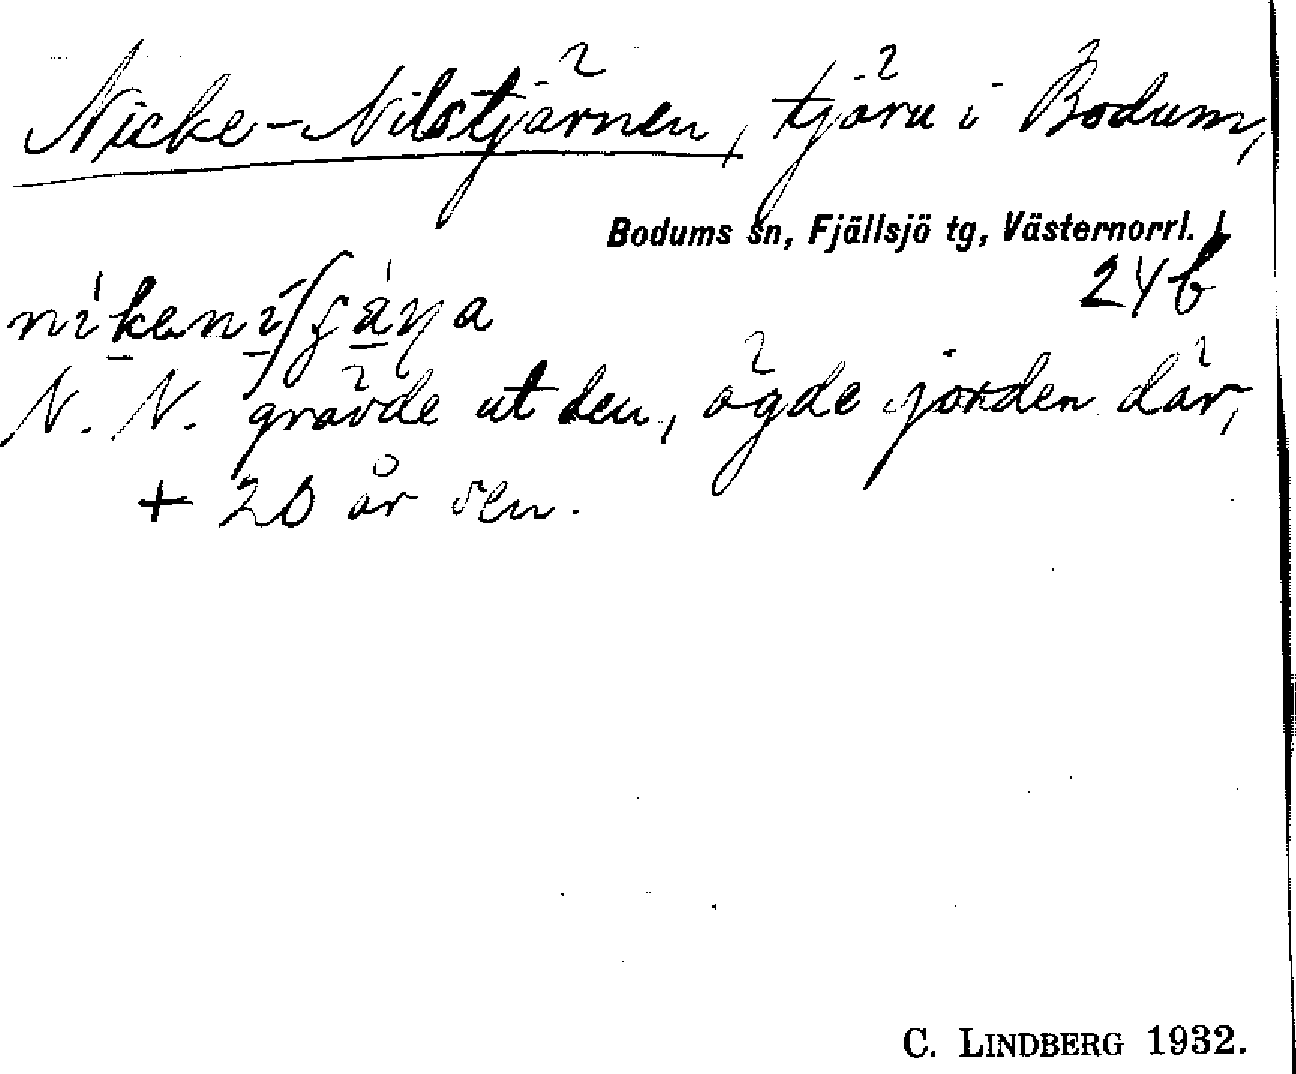 Nicke-Nilstjärnen, tjärn i Bodum,
Bodums sn, Fjällsjö tg, Västernorrl. l
24b
N. N. grävde ut den, ägde jorden där,
+ 20 år sen.
C. LINDBERG 1932.